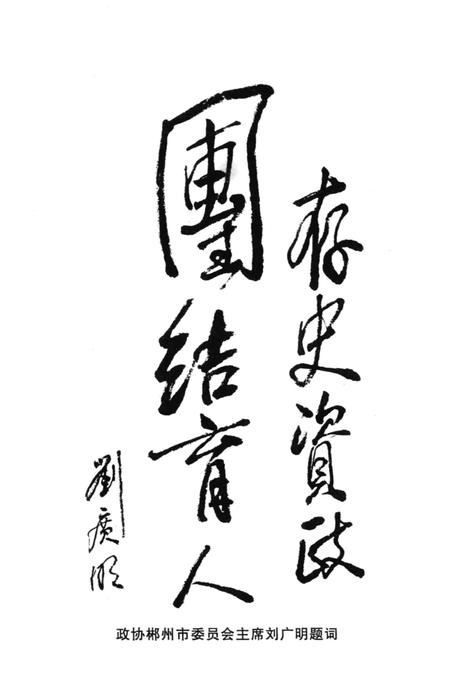 存史資政
團結育人
劉廣明
政协郴州市委员会主席刘广明题词